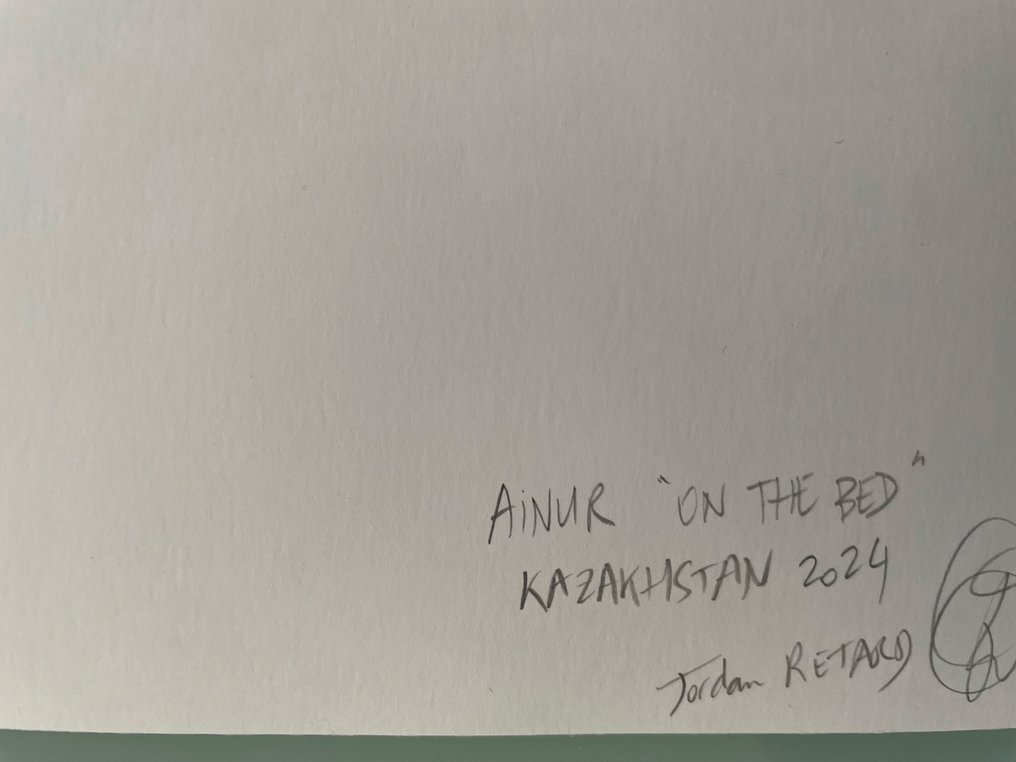 AiNUR "ON THE BED"
KAZAKHSTAN 2024
Jordan RETARD